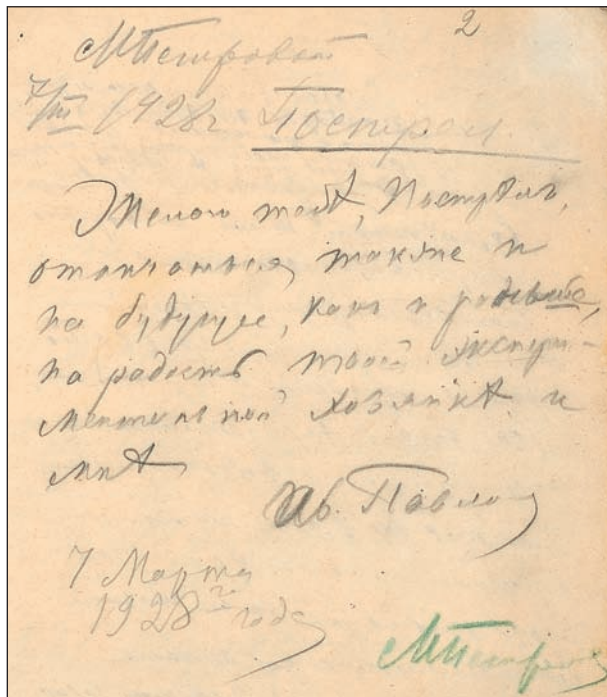 2
МПетровой
7/III 1928г Пострел.
Желаю тебѣ, Пострѣлъ,
отличаться также и
на будущее, какъ и раньше,
на радость твоей экспери-
ментальной хозяйкѣ и
мнѣ
Ив. Павлов
7 Марта
1928го года
МПетров